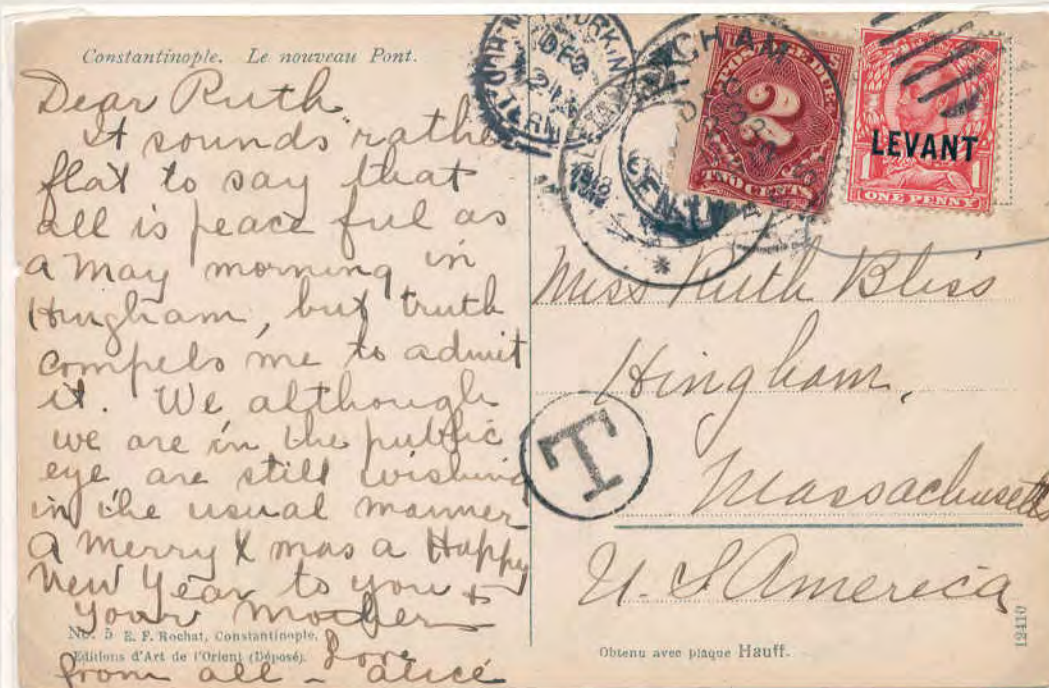 Constantinople. Le nouveau Pont.
Dear Ruth
It sounds rathe
flat to say that
all is peace ful as
a May morning in
Hingham, but truth
compels me to admit
it. We although
we are in the public
eye are still wishing
in the usual manner
a Merry X mas a Happy
New Year to you &
your Mother
No. 5 E. F. Rochat, Constantinople.
Editions d'Art de l'Orient (Déposé).
Love
from all - Alice
DEC
1912
HINGHAM
CENTER
POSTAGE DUE
2
TWO CENTS
LEVANT
1 1
ONE PENNY
Miss Ruth Bliss
Hingham,
T
Massachusetts
U. S America
Obtenu avec plaque Hauff.
12410